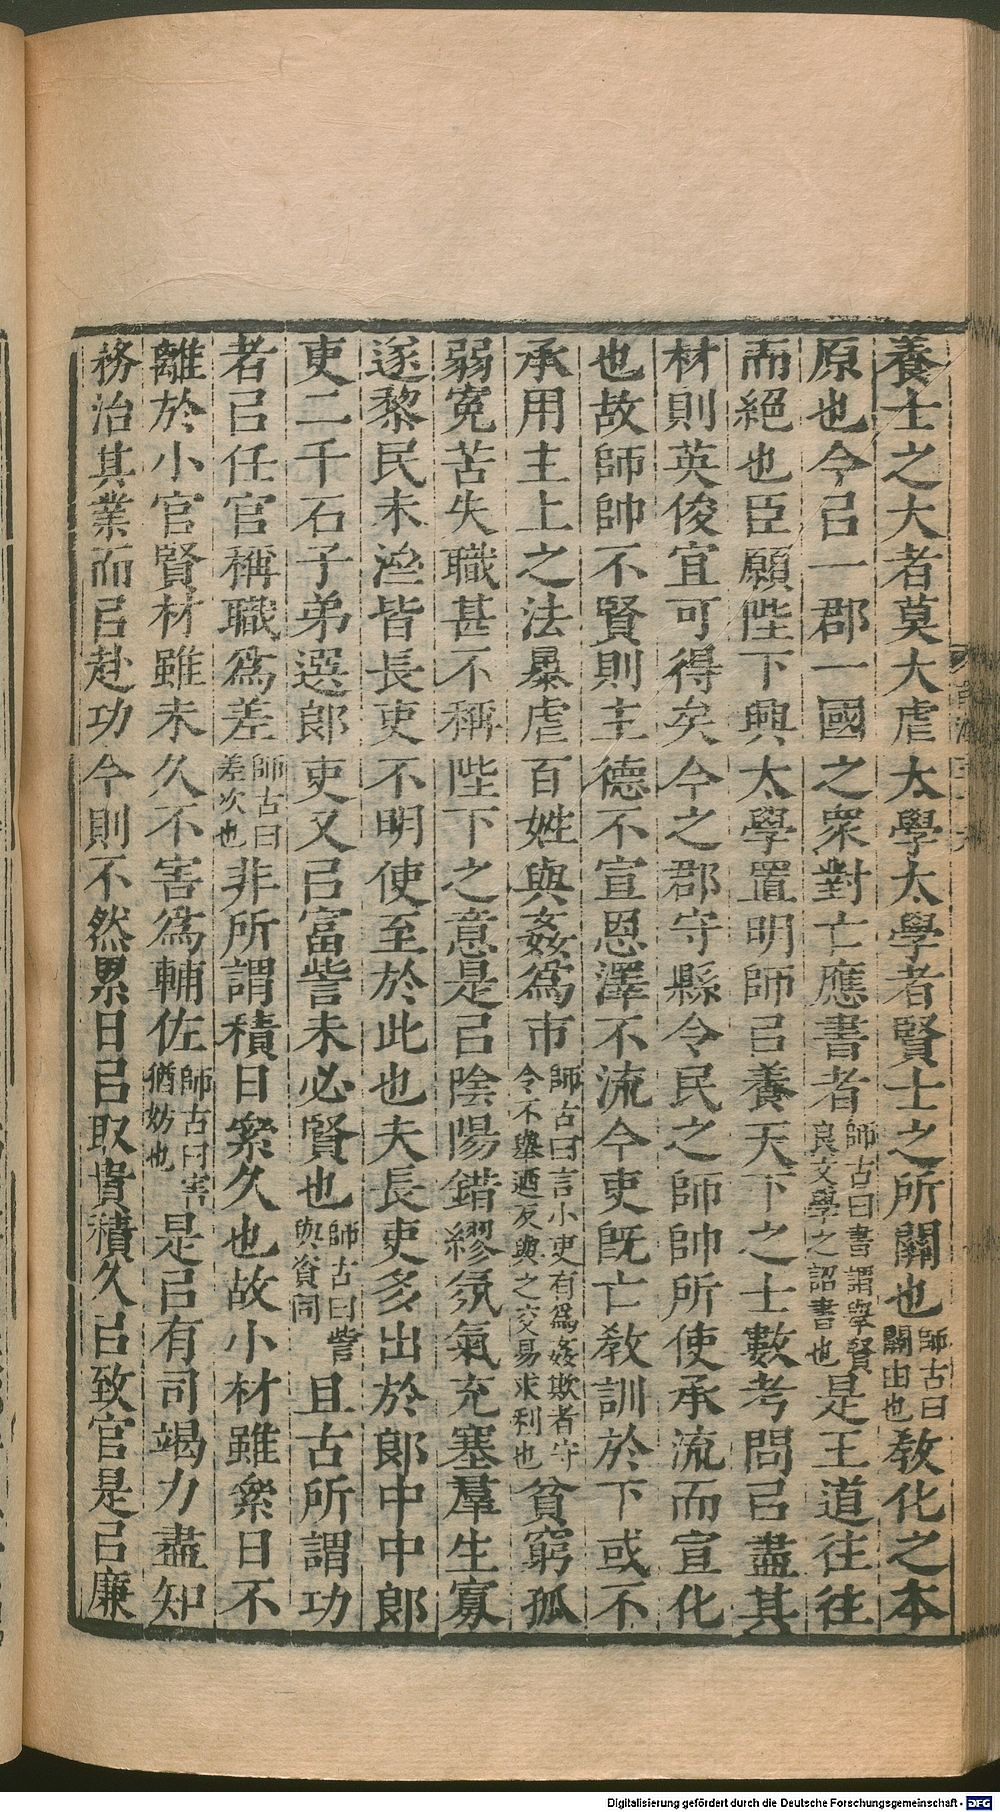 養士之大者莫大虖太學太學者賢士之所關也師古曰關由也教化之本
原也今㠯一郡一國之衆對亡應書者師古曰書謂舉賢良文學之詔書也是王道往往
而絕也臣願陛下興太學置明師㠯養天下之士數考問㠯盡其
材則英俊宜可得矣今之郡守縣令民之師帥所使承流而宣化
也故師帥不賢則主德不宣恩澤不流今吏旣亡敎訓於下或不
承用主上之法暴虐百姓與姦爲市師古曰言小吏有爲姦欺者守令不舉迺反與之交易求利也貧窮孤
弱寃苦失職甚不稱陛下之意是㠯陰陽錯繆氛氣充塞羣生寡
遂黎民未濟皆長吏不明使至於此也夫長吏多出於郞中中郞
吏二千石子弟選郞吏又㠯富訾未必賢也師古曰訾與資同且古所謂功
者㠯任官稱職爲差師古曰差次也非所謂積日絫久也故小材雖絫日不
離於小官賢材雖未久不害爲輔佐師古曰害猶妨也是㠯有司竭力盡知
務治其業而㠯赴功今則不然累日㠯取貴積久㠯致官是㠯廉
Digitalisierung gefördert durch die Deutsche Forschungsgemeinschaft - DFG